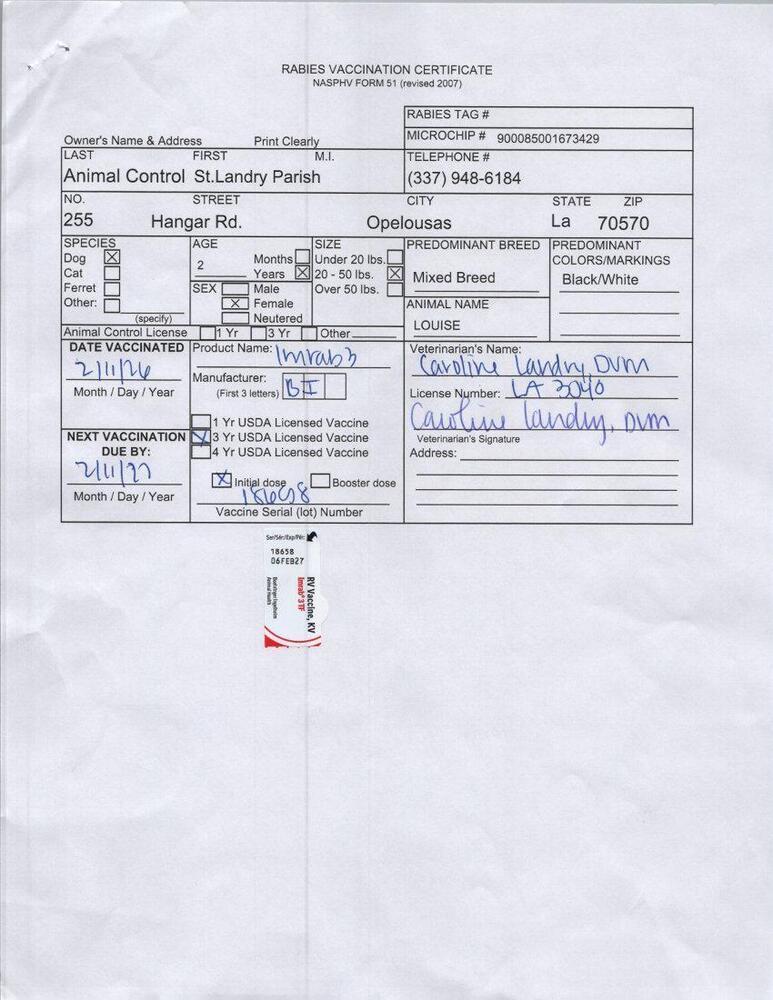 RABIES VACCINATION CERTIFICATE
NASPHV FORM 51 (revised 2007)
RABIES TAG #
Owner's Name & Address Print Clearly
MICROCHIP # 900085001673429
LAST FIRST M.I.
TELEPHONE #
Animal Control St.Landry Parish
(337) 948-6184
NO. STREET CITY STATE ZIP
255 Hangar Rd. Opelousas La 70570
SPECIES AGE SIZE PREDOMINANT BREED PREDOMINANT
Dog X Months Under 20 lbs. COLORS/MARKINGS
Cat 2 Years X 20 - 50 lbs. X Mixed Breed Black/White
Ferret SEX Male Over 50 lbs.
Other: X Female ANIMAL NAME
(specify) Neutered LOUISE
Animal Control License 1 Yr 3 Yr Other
DATE VACCINATED Product Name: Imrab 3 Veterinarian's Name:
2/11/26 Caroline Landry, DVM
Month / Day / Year Manufacturer: BI
(First 3 letters)
License Number: LA 3040
1 Yr USDA Licensed Vaccine Caroline Landry, DVM
NEXT VACCINATION X 3 Yr USDA Licensed Vaccine Veterinarian's Signature
DUE BY: 4 Yr USDA Licensed Vaccine Address:
2/11/27
X Initial dose Booster dose
Month / Day / Year 18658
Vaccine Serial (lot) Number
Ser/Sér:/Exp/Pér:
18658
06FEB27
RV Vaccine, KV
Imrab® 3 TF
Boehringer Ingelheim
Animal Health